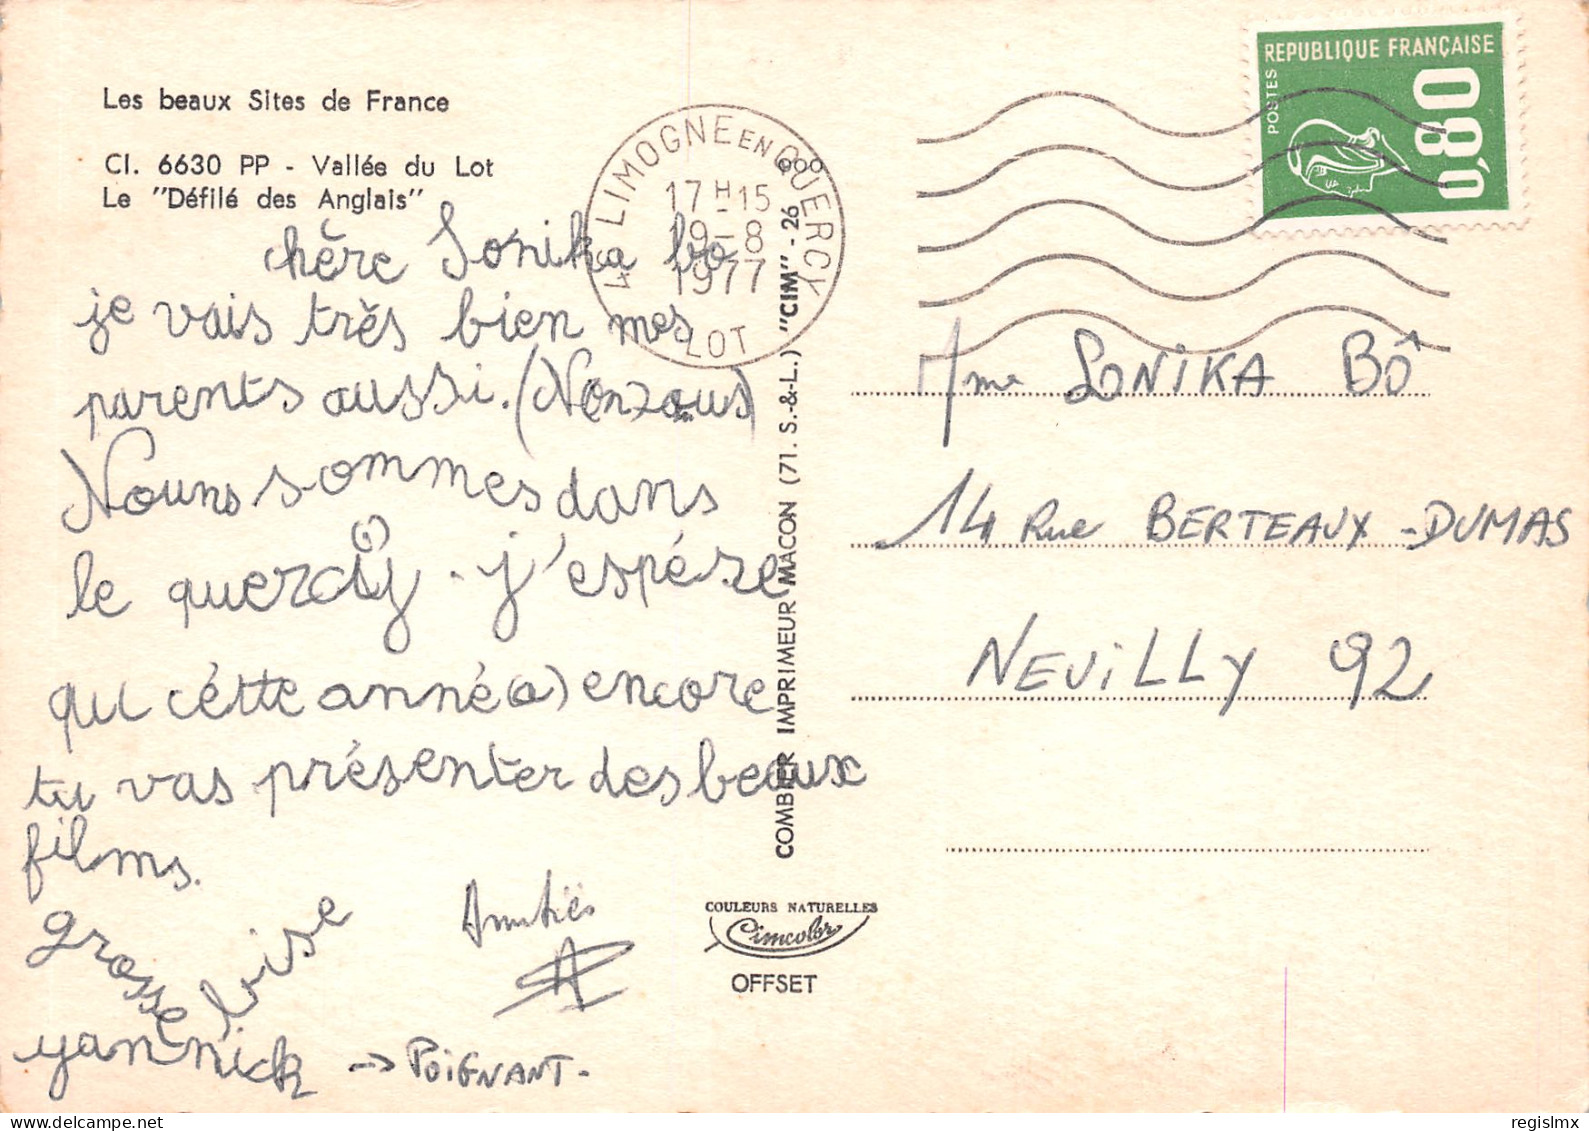 Les beaux Sites de France
CI. 6630 PP - Vallée du Lot
Le "Défilé des Anglais"
chère Sonika bo
je vais très bien mes
parents aussi. (Non aus)
Nouns sommes dans
le quercy. j'espére
qu cétte anné(o) encore
tu vas présenter des beaux
films.
grosse bise
yannick -> POIGNANT.
Amitiés
46 LIMOGNE EN QUERCY
17H-15
9-8
1977
LOT
COMBIER IMPRIMEUR MACON (71. S.-&-L.) "CIM" - 26
COULEURS NATURELLES
Cimcolor
OFFSET
REPUBLIQUE FRANÇAISE
POSTES
0,80
Mme SONIKA BÔ
14 Rue BERTEAUX-DUMAS
NEUiLLY 92
regislmx